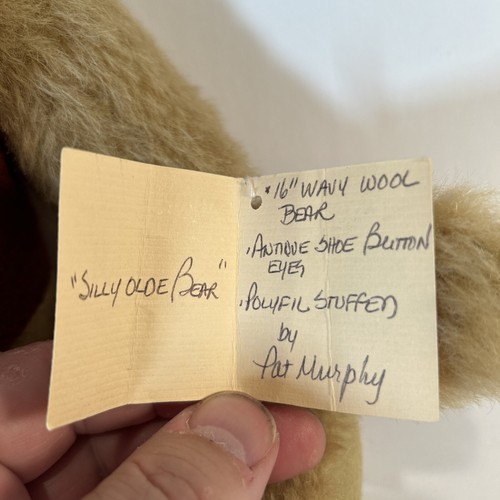 "SILLY OLDE BEAR"
•16" WAVY WOOL
BEAR
•ANTIQUE SHOE BUTTON
EYES
•POLYFIL STUFFED
by
Pat Murphy